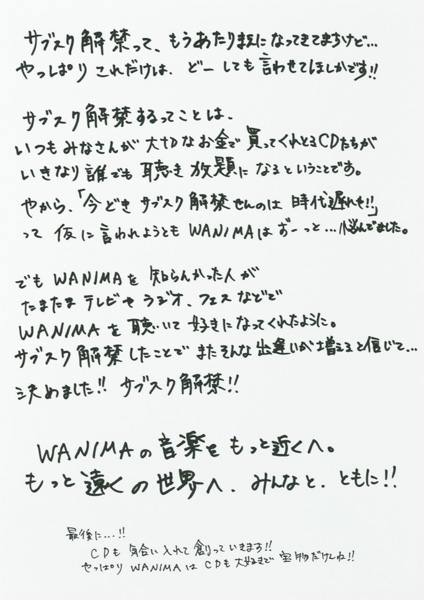 サブスク解禁って、もうあたりまえになってきてますけど...
やっぱり これだけは、どーしても言わせてほしかです!!
サブスク解禁するってことは、
いつもみなさんが 大切なお金で 買ってくれとるCDたちが
いきなり 誰でも 聴き放題に なるということです。
やから、「今どき サブスク解禁せんのは 時代遅れぞ!!」
って 仮に言われようとも WANIMAは ずーっと...悩んでました。
でも WANIMAを 知らんかった人が
たまたま テレビや ラジオ、フェス などで
WANIMAを 聴いて 好きになってくれたように。
サブスク解禁したことで またそんな出逢いが増えると信じて...
決めました!! サブスク解禁!!
WANIMAの音楽を もっと近くへ。
もっと 遠くの世界へ、みんなと、ともに!!
最後に...!!
CDも 気合い入れて 創っていきます!!
やっぱり WANIMAは CDも大好きで 宝物だけんね!!